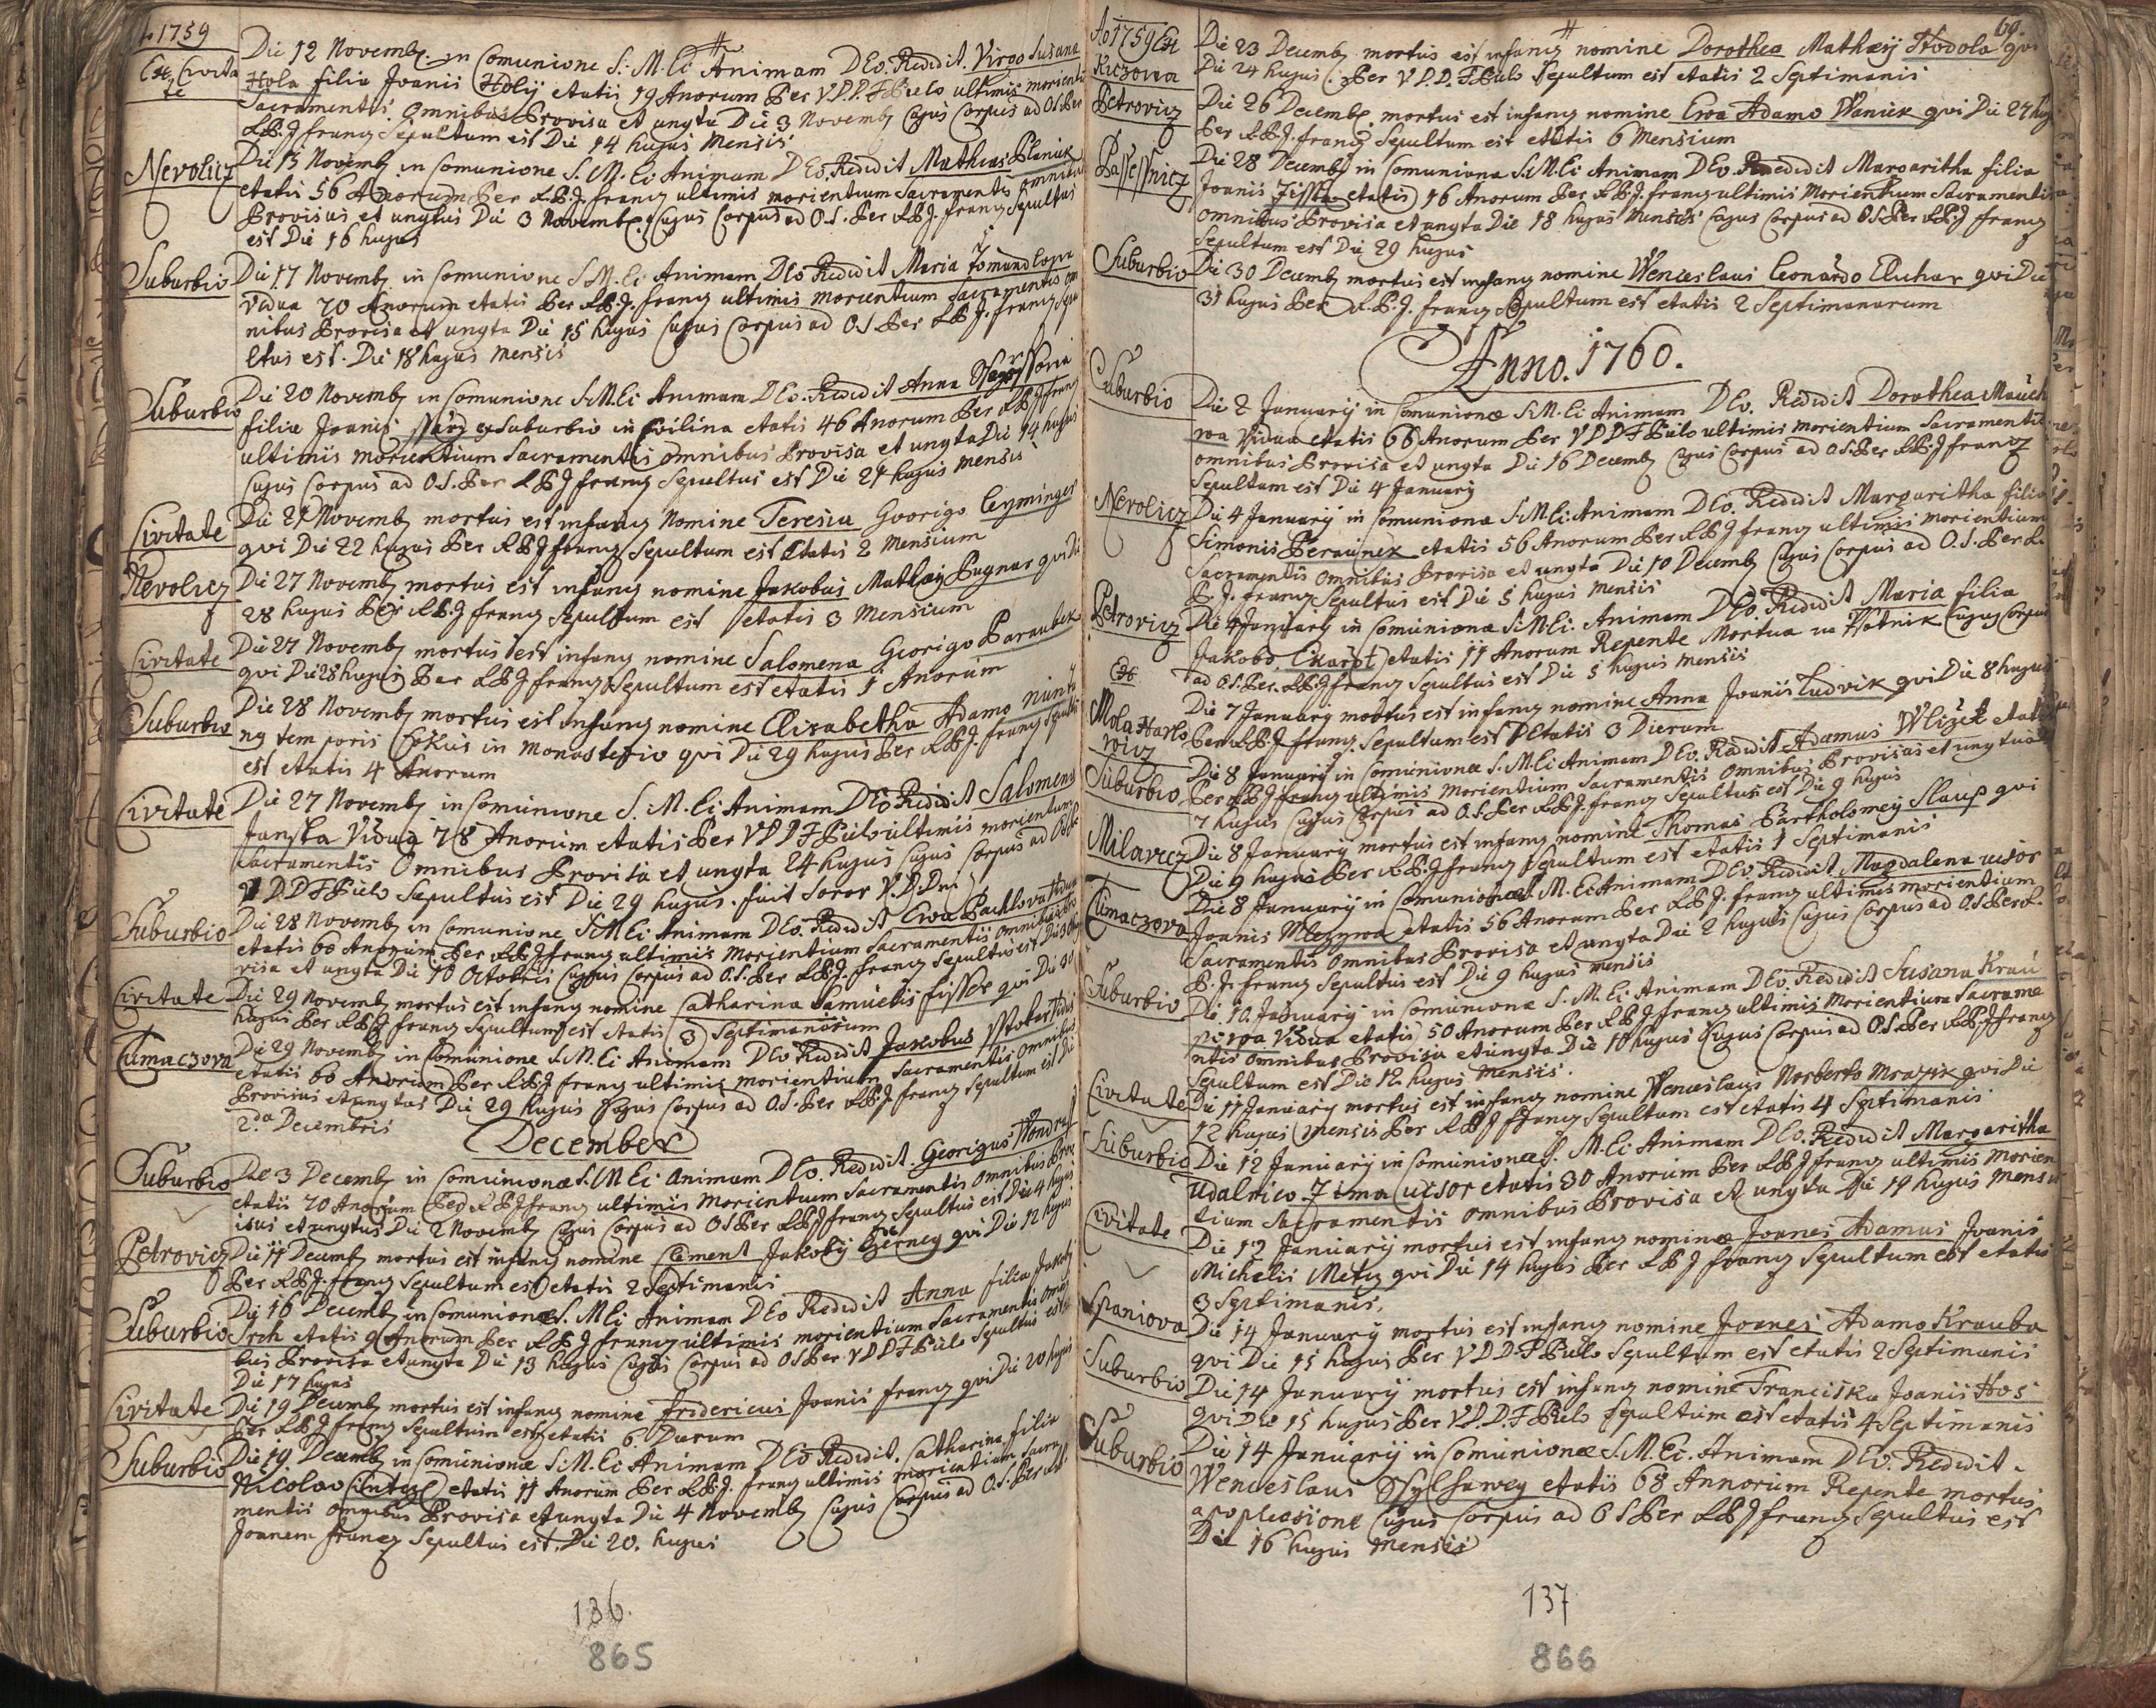 1759
Ex Civita
te
Die 12 Novemb. in Comunione S. M. Ei Animam DEo Redidit Virgo Susana
Hola filia Joanis Holÿ etatis 19 Anorum Per V.P.D.F. Pulo ultimis morienti
Sacramentis Omnibus Provisa et ungta Die 3 Novemb cujus Corpus ad O.S. Per
R.P.J. franz Sepultum est Die 14 hujus Mensis
Nevolicz
Die 15 Novemb in Comunione S. M. Ei Animam DEo Redidit Mathias Planick
etatis 56 Anorum Per R.P.J. franz ultimis morientium Sacramentis omnibus
Provisus et ungtus Die 3 Novemb. Cujus Corpus ad O.S. Per R.P.J. franz Sepultus
est Die 16 hujus
Suburbio
Die 17 Novemb in Comunione S.M. Ei Animam DEo Redidit Maria
Vidua 70 Anorum etatis Per R.P.J. franz ultimis morientium Sacramentis om
nibus Provisa et ungta Die 15 hujus Cujus Corpus ad O.S Per R.P.J. franz Sepu
ltus est. Die 18 hujus mensis
Suburbio
Die 20 Novemb in Comunione S.M. Ei Animam DEo. Redidit Anna
filia Joanis ex Suburbio in etatis 46 Anorum Per R.P.J franz
ultimis morientium Sacramentis omnibus Provisa et ungta Die 14 hujus
Cujus Corpus ad O.S. Per R.P.J franz Sepultus est Die 21 hujus mensis
Civitate
Die 21 Novemb mortus est infanz Nomine Teresia Georigo Cezminger
qvi Die 22 hujus Per R.P.J franz Sepultum est Etatis 2 Mensium
Nevolicz
Die 27 Novemb mortus est infanz nomine Jakobus Mathaj Pugnar qvi Die
28 hujus Per R.P.J franz Sepultum est etatis 3 Mensium
Civitate
Die 27 Novemb mortus est infanz nomine Salomena Georigo Paraubek
qvi Die 28 hujus Per R.P.J franz Sepultum est etatis 1 Anorum
Suburbio
Die 28 Novemb mortus est infanz nomine Elisabetha Adamo
temporis in Monasterio qvi Die 29 hujus Per R.P.J. franz Sepultus
est etatis 4 Anorum
Civitate
Die 27 Novemb in Comunione S. M. Ei Animam DEo Redidit Salomena
Janska Vidua 78 Anorum etatis Per V D D F Pulo ultimis morientum
Sacramentis Omnibus Provisa et ungta 24 hujus Cujus Corpus ad O.S. Per
V D D F Pulo Sepultus est Die 29 hujus. fuit Soror V.D.Dni
Suburbio
Die 28 Novemb in Comunione S.M Ei Animam DEo. Redidit Eva Pachlova Vidua
etatis 60 Anorum Per R.P.J franz ultimis Morientium Sacramentis omnibus Pro
visa et ungta Die 10 Octobris Cujus Corpus ad O.S. Per R.P.J. franz Sepultus est Die 30
Civitate
Die 29 Novemb mortus est infanz nomine Catharina Samuelis fisser qvi Die 30
hujus Per R.P.J franz Sepultum est etatis 3 Septimanorum
Tlumaczova
Die 29 Novemb in Comunione S.M. Ei Animam DEo Redidit Jakobus
etatis 60 Anorum Per R.P.J franz ultimis morientium Sacramentis omnibus
Provisus et ungtus Die 29 hujus Cujus Corpus ad O.S. Per R.P.J. franz Sepultum est Die
2da Decembris
December
Suburbio
Die 3 Decemb in Comunione S. M Ei Animam DEo. Redidit Georigus
etatis 70 Anorum Per R.P.J franz ultimis Morientium Sacramentis omnibus Prov
isus et ungtus Die 2 Novemb Cujus Corpus ad O.S Per R.P.J franz Sepultus est Die 4 hujus
Petrovicz
Die 11 Decemb mortus est infanz nomine Clement Jakobÿ Czerney qvi Die 12 hujus
Per R.P.J. franz Sepultum est etatis 2 Septimanis
Suburbio
Die 16 Decemb in Comunione S. M Ei Animam DEo Redidit Anna filia Jakobj
Srch etatis 9 Anorum Per R.P.J franz ultimis morientium Sacramentis omni
bus Provisa et ungta Die 13 hujus Cujus Corpus ad O S Per V D D F Pulo Sepultus est
Die 17 hujus
Civitate
Die 19 Decemb mortus est infanz nomine Fridericus Joanis franz qvi Die 20 hujus
Per R.P.J franz Sepultum est etatis 6 Dierum
Suburbio
Die 19 Decemb in Comunione S. M. Ei Animam DEo Redidit. Catharina filia
Nicolao etatis 11 Anorum Per R.P.J. franz ultimis morientium Sacra
mentis omnibus Provisa et ungta Die 4 Novemb Cujus Corpus ad O.S. Per
Joanem franz Sepultus est. Die 20. hujus
136.
865
Ao 1759 Ex
Kiczowa
69.
Die 23 Decemb mortus est infanz nomine Dorothea Mathæÿ Hodola qvi
Die 24 hujus Per V.D.D.F. Pulo Sepultum est etatis 2 Septimanis
Petrovicz
Die 26 Decemb. mortus est infanz nomine Ewa Adamo Waniek qvi Die 27 huj
Per R.P.J. franz Sepultum est etatis 6 Mensium
Passessnicz
Die 28 Decemb in Comunione S. M. Ei Animam DEo. Redidit Margaritha filia
Joanis etatis 16 Anorum Per R.P.J. franz ultimis Morientium Sacramentis
omnibus Provisa et ungta Die 18 hujus mensis Cujus Corpus ad O.S. Per R.P.J franz
Sepultum est Die 29 hujus
Suburbio
Die 30 Decemb mortus est infanz nomine Wenceslaus Leonardo Cluhar qvi Die
31 hujus Per R.P.J. franz Sepultum est etatis 2 Septimanarum
Anno. 1760.
Suburbio
Die 2 Januarÿ in Comunione S. M. Ei Animam DEo. Redidit Dorothea Mauch
rva Vidua etatis 66 Anorum Per V D D F Pulo ultimis morientium Sacramentis
omnibus Provisa et ungta Die 16 Decemb Cujus Corpus ad O.S. Per R.P.J franz
Sepultum est Die 4 January
Nevolicz
Die 4 January in Comunione S. M. Ei Animam DEo. Redidit Margaritha filia
Simonis Beraunek etatis 56 Anorum Per R.P.J franz ultimis morientium
Sacramentis omnibus Provisa et ungta Die 10 Decemb Cujus Corpus ad O.S. Per R.
P.J. franz Sepultus est Die 5 hujus Mensis
Petrovicz
Die 4 January in Comunione S. M. Ei. Animam DEo. Redidit Maria filia
Jakobo etatis 11 Anorum Repente Mortua Cujus Corpus
ad O.S. Per. R.P.J franz Sepultus est Die 5 hujus Mensis
Ex
Mola
Die 7 January mortus est infanz nomine Anna Joanis Ludvik qvi Die 8 hujus
Per R.P.J franz. Sepultum est Etatis 3 Dierum
Suburbio
Die 8 January in Comunione S. M. Ei Animam DEo. Redidit Adamus Wlizek etatis
Per R.P.J franz ultimis Morientium Sacramentis omnibus Provisus et ungtus
7 hujus Cujus Corpus ad O.S. Per R.P.J. franz Sepultus est Die 9 hujus
Milavecz
Die 8 January mortus est infanz nomine Thomas Bartholomej Slaup qvi
Die 9 hujus Per R.P.J franz Sepultum est etatis 1 Septimanis
Tlumaczova
Die 8 Januarÿ in Comunione S. M. Ei Animam DEo. Redidit Magdalena ucsor
Joanis Mlezywa etatis 56 Anorum Per R.P.J. franz ultimis morientium
Sacramentis omnibus Provisa et ungta Die 2 hujus Cujus Corpus ad O.S Per R.
P.J. franz Sepultus est Die 9 hujus mensis
Suburbio
Die 10 January in Comunione S. M. Ei. Animam DEo. Redidit Susana Krau
Vidua etatis 50 Anorum Per R.P.J franz ultimis Morientium Sacrame
ntis omnibus Provisa et ungta Die 10 hujus Cujus Corpus ad O.S. Per R.P.J franz
Sepultum est Die 12 hujus Mensis.
Civitate
Die 11 January mortus est infanz nomine Wenceslaus Norberto Mrazik qvi Die
12 hujus mensis Per R.P.J franz Sepultum est etatis 4 Septimanis
Suburbio
Die 12 Januarÿ in Comunione S. M. Ei Animam DEo. Redidit Margaritha
Udalrico Zima ucsor etatis 30 Anorum Per R.P.J franz ultimis Morien
tium Sacramentis omnibus Provisa et ungta Die 19 hujus Mensis
Civitate
Die 13 Januarÿ mortus est infanz nomine Joanes Adamus Joanis
Michelis Metz qvi Die 14 hujus Per R.P.J franz Sepultum est etatis
3 Septimanis.
Spaniova
Die 14 Januarÿ mortus est infanz nomine Joanes Adamo Krauba
qvi Die 15 hujus Per V D D F Pulo Sepultum est etatis 2 Septimanis
Suburbio
Die 14 Januarÿ mortus est infanz nomine Franciska Joanis Hos
qvi Die 15 hujus Per V.D.D.F Pulo Sepultum est etatis 4 Septimanis
Suburbio
Die 14 Januarÿ in Comunione S. M. Ei. Animam DEo. Redidit
Wenceslaus etatis 68 Annorum Repente mortus
apoplessione Cujus Corpus ad O S Per R.P.J franz Sepultus est
Die 16 hujus Mensis
137
866